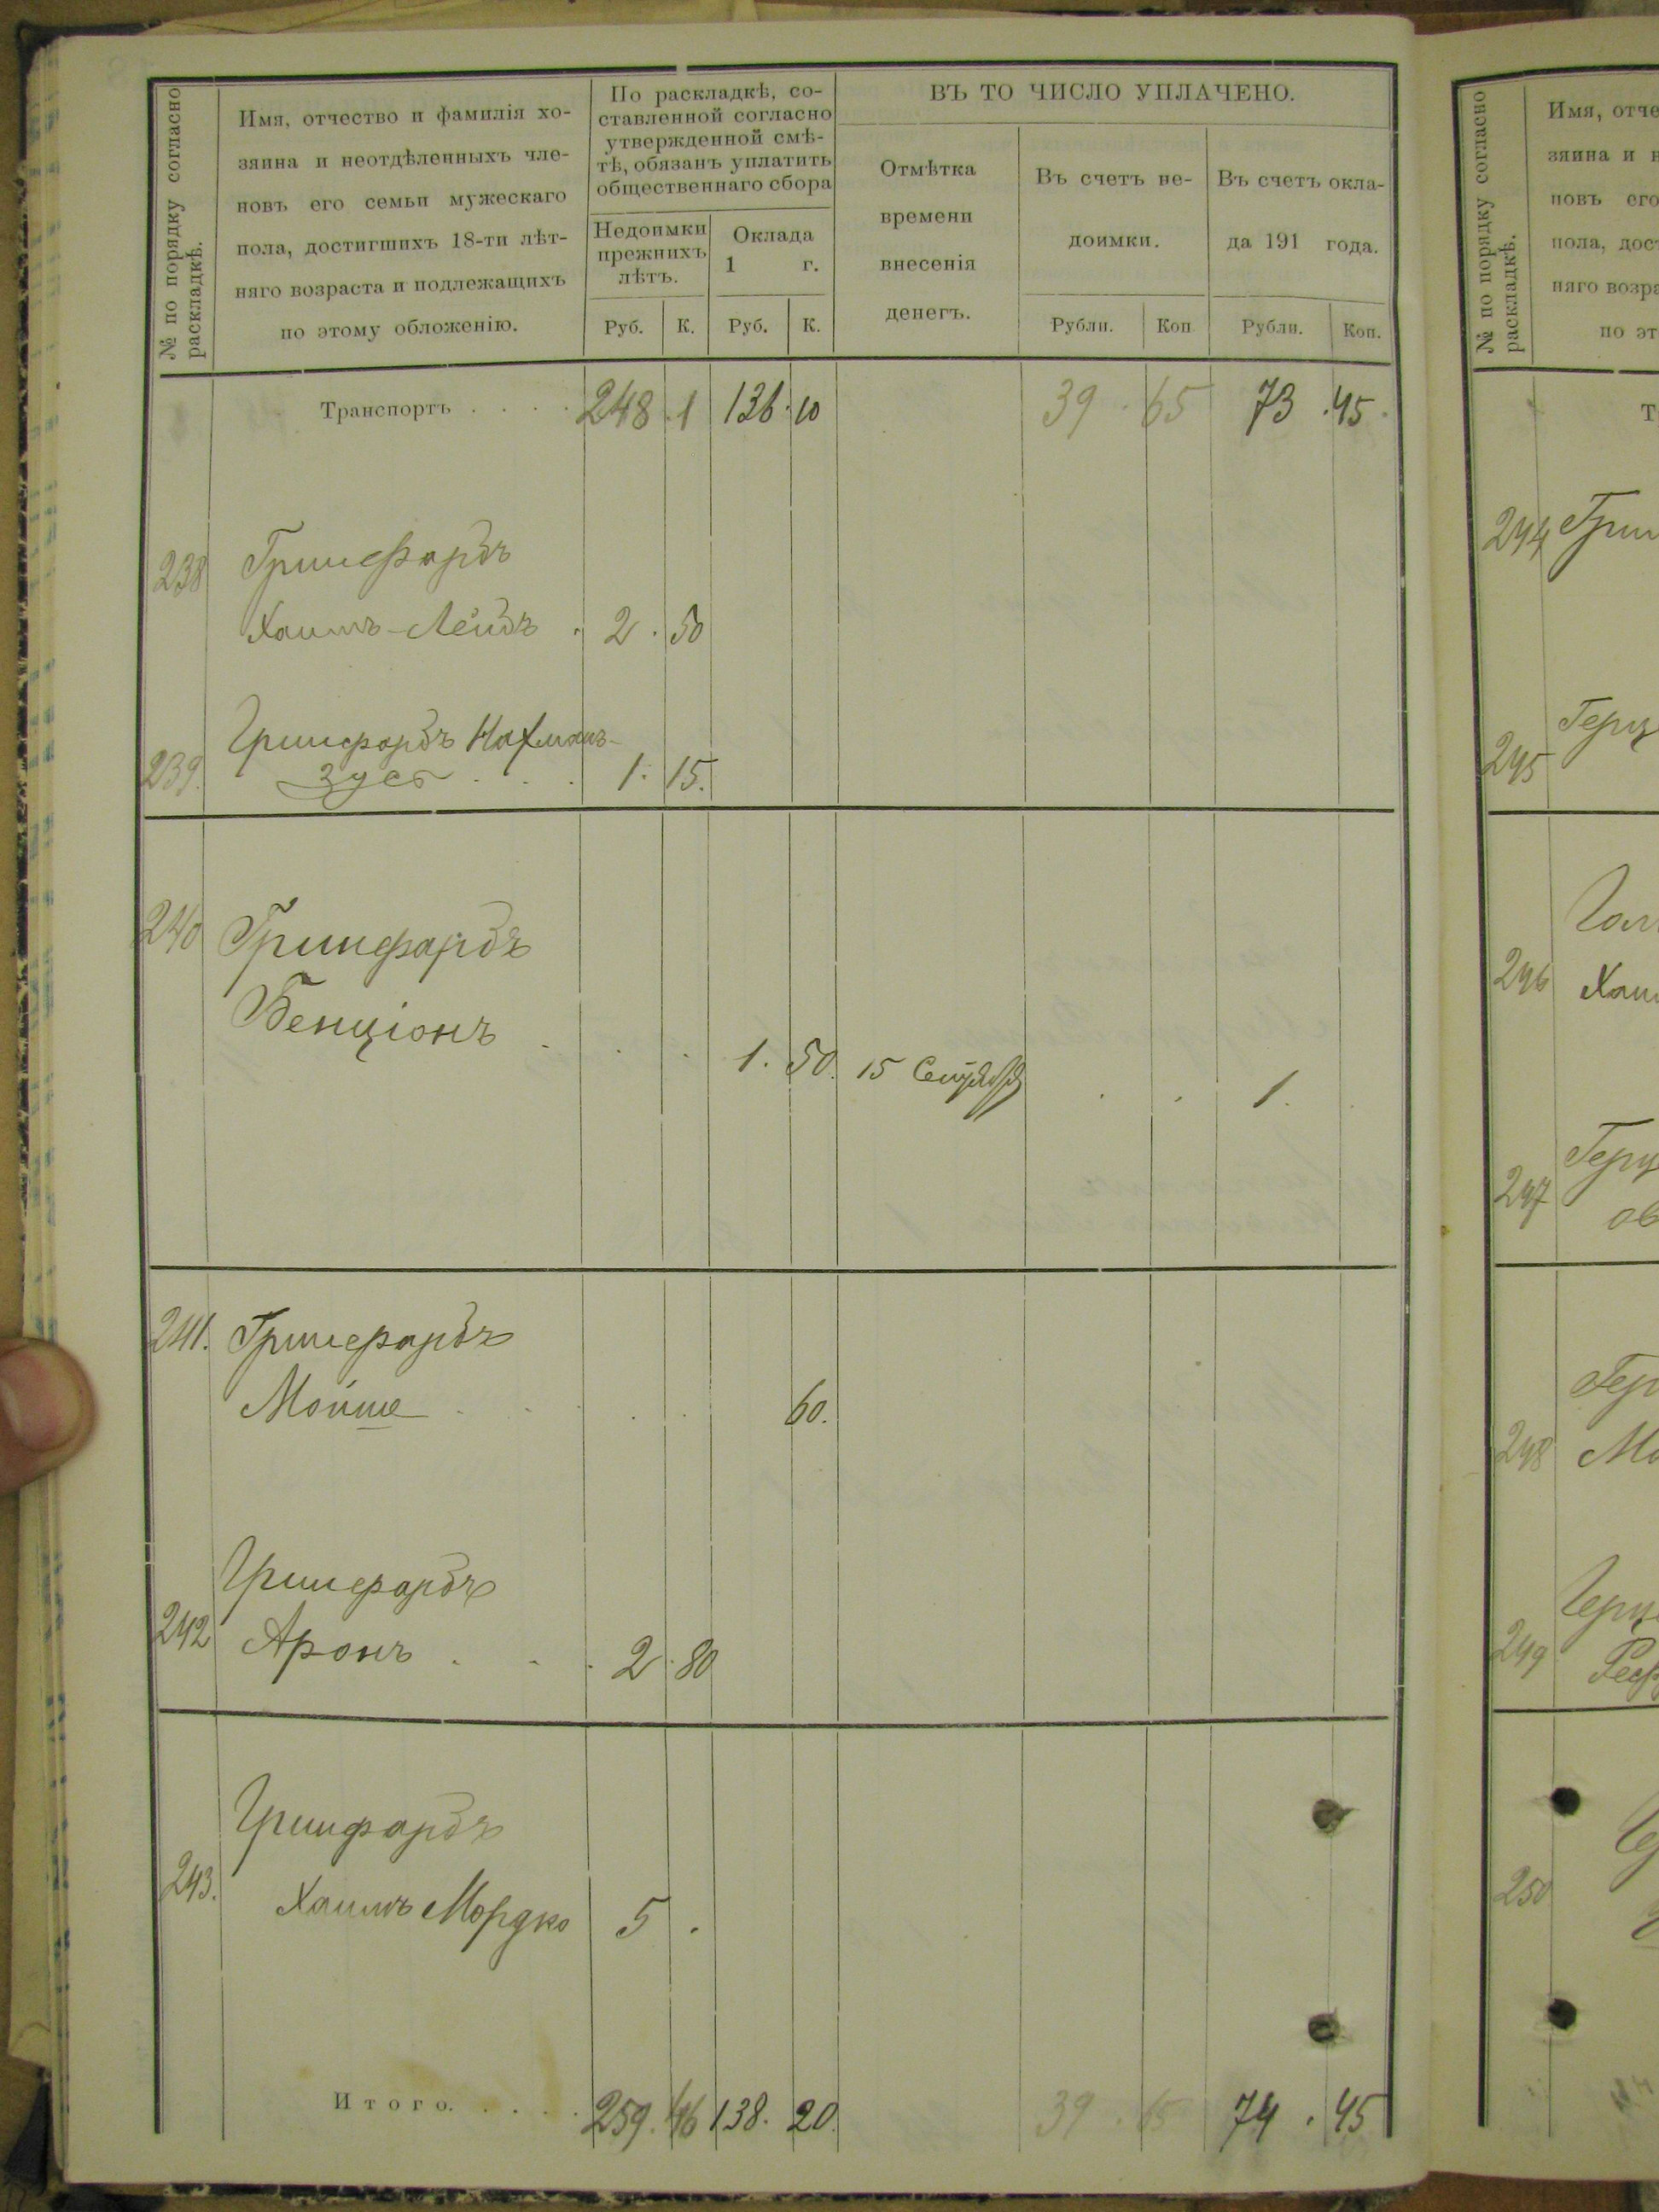 № по порядку согласно
раскладкѣ.
Имя, отчество и фамилія хо-
зяина и неотдѣленныхъ чле-
новъ его семьи мужескаго
пола, достигшихъ 18-ти лѣт-
няго возраста и подлежащихъ
по этому обложенію.
По раскладкѣ, со-
ставленной согласно
утвержденной смѣ-
тѣ, обязанъ уплатить
общественнаго сбора
Недоимки
прежнихъ
лѣтъ.
Оклада
1 г.
Руб. К. Руб. К.
ВЪ ТО ЧИСЛО УПЛАЧЕНО.
Отмѣтка
времени
внесенія
денегъ.
Въ счетъ не-
доимки.
Въ счетъ окла-
да 191 года.
Рубли. Коп Рубли. Коп.
Транспортъ . . . . 248 . 1 136 . 10 39 . 65 73 . 45 .
238 Гринфардъ
Хаимъ-Лейбъ . 2 . 50
Гринфардъ Нахманъ-
239. Зусь . . . 1 . 15.
240 Гринфардъ
Бенціонъ . . . 1 . 50. 15 . . 1 .
241. Гринфардъ
Мойше . . . . . 60.
Гринфардъ
242 Аронъ . . . 2 . 80
Гринфардъ
243. Хаимъ Мордко 5 .
Итого. . . . . 259. 46 138. 20. 39 . 65 74 . 45
№ по порядку согласно
раскладкѣ.
Имя, отче
зяина и н
новъ его
пола, дос
няго возра
по эт
Т
244 Грин
Герц
245
246 Хаим
Герц
247 ов
Гер
248 Мо
Герц
249
250